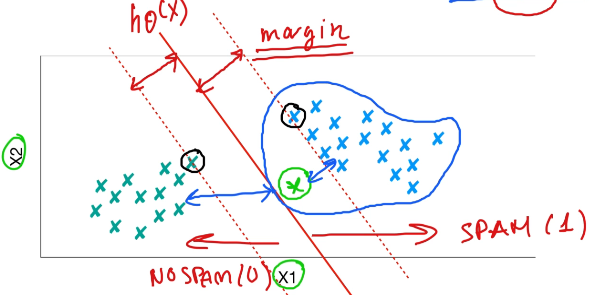 hθ(x)
margin
X2
SPAM (1)
NO SPAM (0)
X1